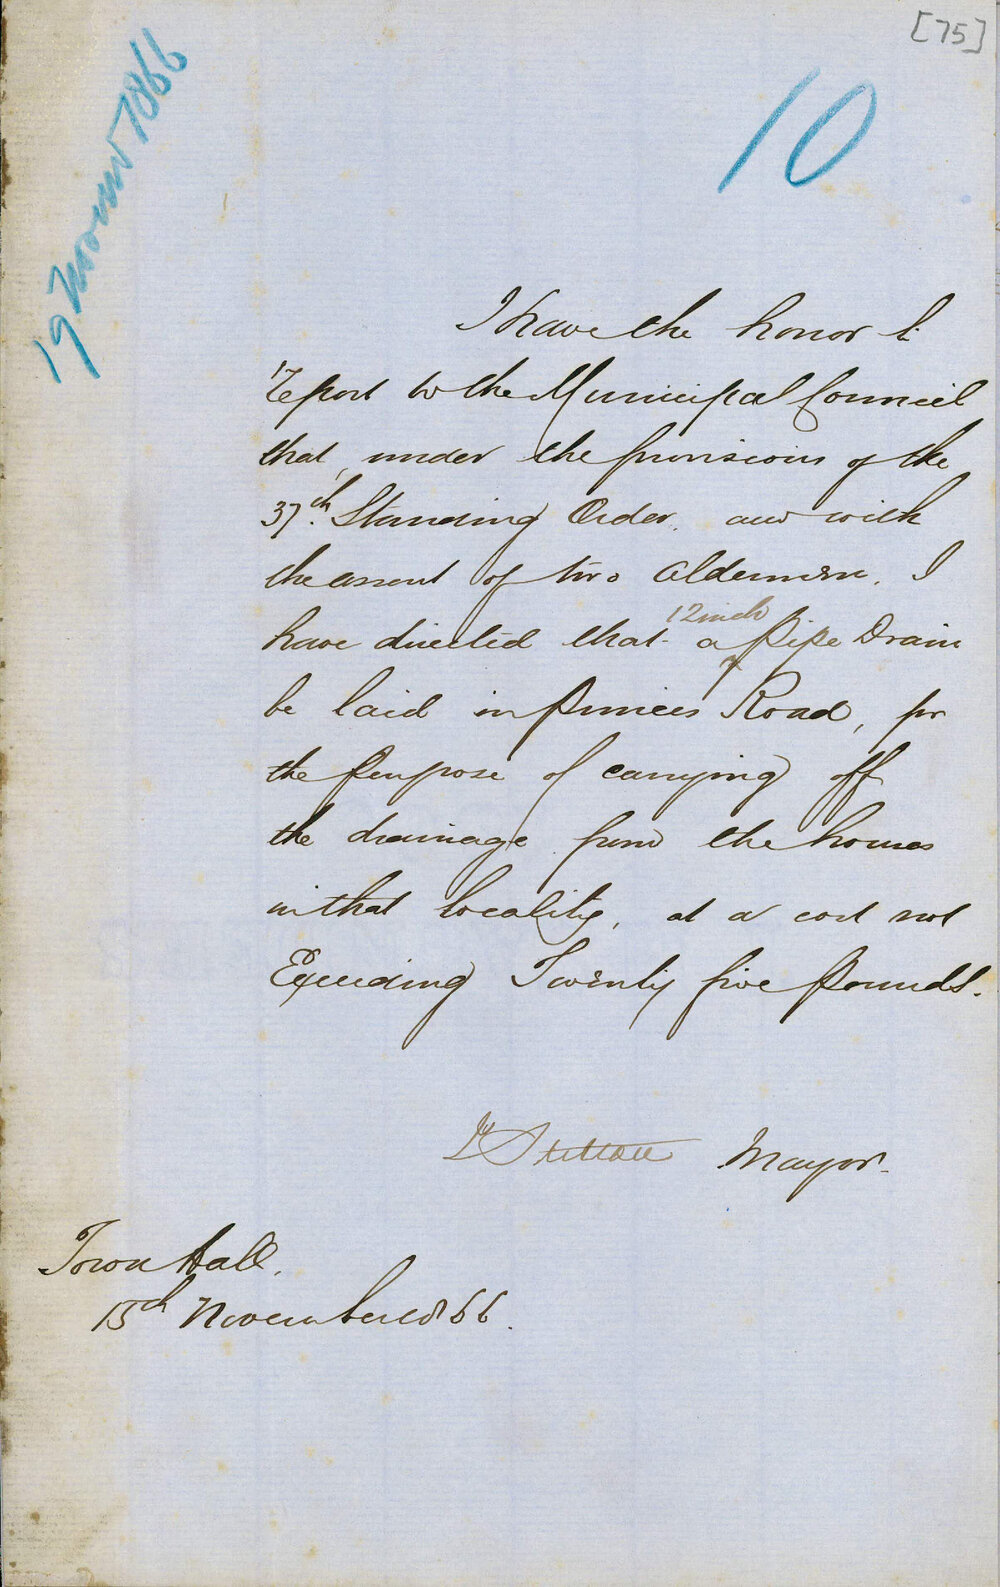 [75]
10
19 Novemr 1866
I have the honor to
report to the Municipal Council
that, under the provisions of the
37th. Standing Order, and with
the assent of two Aldermen, I
12 inch
have directed that a pipe Drain
be laid in Princes Road, for
the purpose of carrying off
the drainage from the houses
in that locality, at a cost not
Exceeding Twenty five pounds.
Mayor.
Town Hall.
15th November 1866.